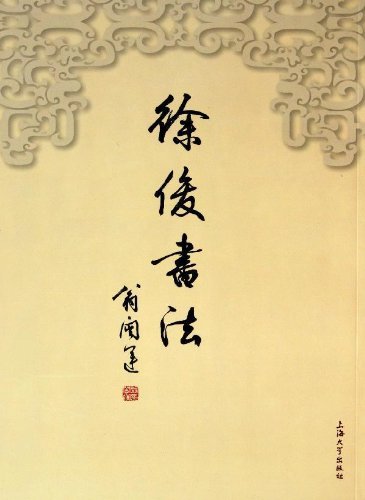 徐俊书法
翁闿运
上海大学出版社